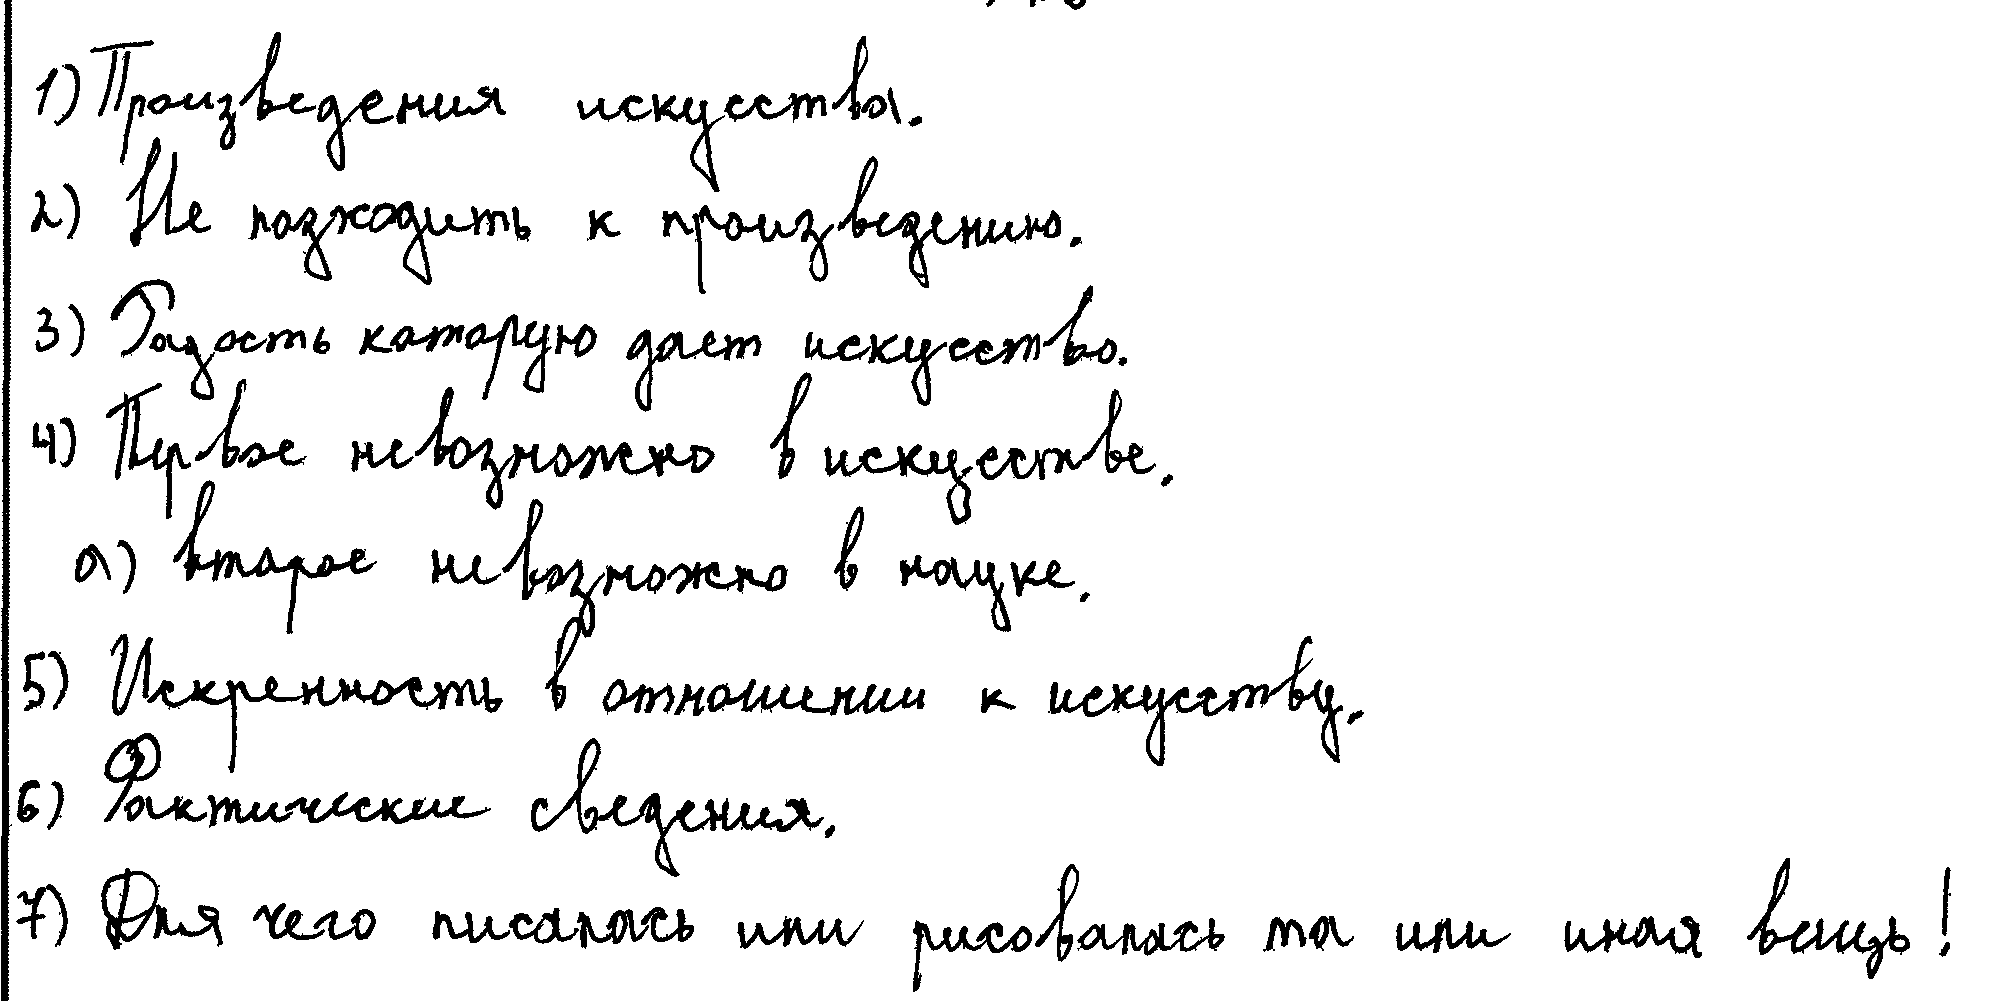 1) Произведения искусства.
2) Не позходить к произведению.
3) Радость которую дает искусство.
4) Первое невозможно в искусстве.
а) второе невозможно в науке.
5) Искренность в отношении к искусству.
6) Фактические сведения.
7) Для чего писалась или рисовалась та или иная вещь!